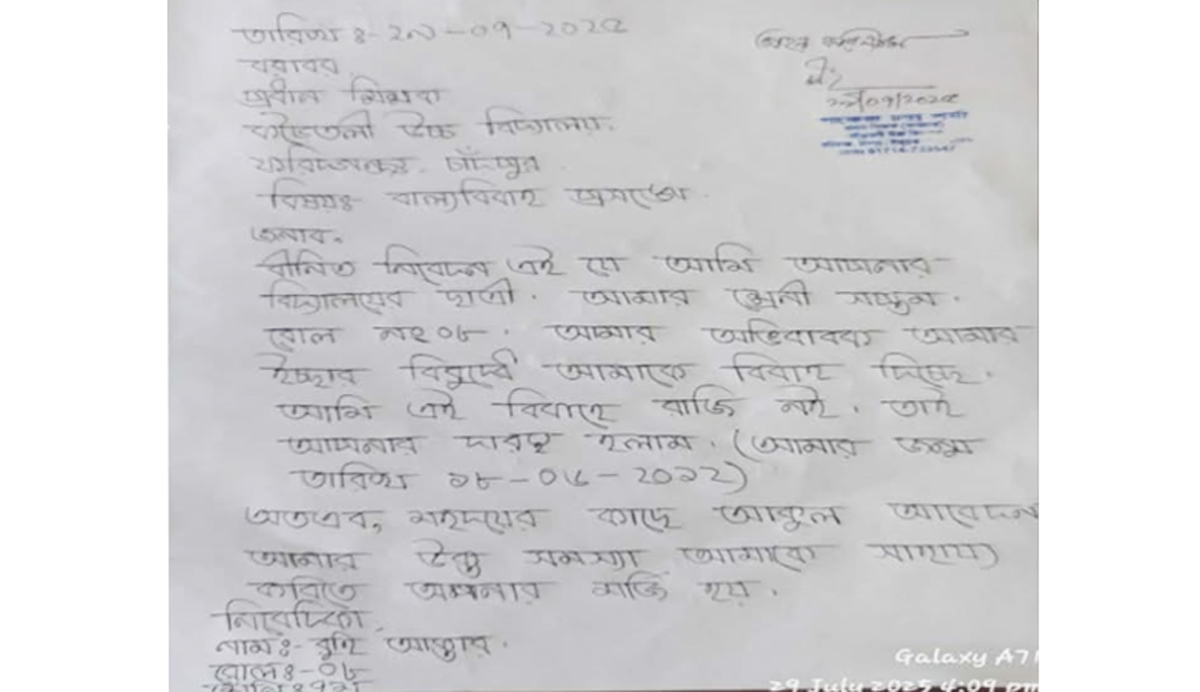 তারিখঃ- ২৯-০৭-২০২৫
বরাবর
প্রধান শিক্ষক
কড়ৈতলী উচ্চ বিদ্যালয়.
ফরিদগঞ্জ, চাঁদপুর.
বিষয়ঃ বাল্যবিবাহ প্রসঙ্গে.
২৯/০৭/২০২৫
জনাব,
বীনিত নিবেদন এই যে আমি আপনার
বিদ্যালয়ের ছাত্রী. আমার শ্রেনী সপ্তম.
রোল নং০৮. আমার অভিবাবক আমার
ইচ্ছার বিরুদ্ধে আমাকে বিবাহ দিচ্ছে.
আমি এই বিবাহে রাজি নই. তাই
আপনার দারস্থ হলাম. (আমার জন্ম
তারিখ ১৮-০৬-২০১২)
অতএব, মহদয়ের কাছে আকুল আবেদন
আমার উক্ত সমস্যা আমাকে সাহায্য
করিতে আপনার মর্জি হয়.
নিবেদিকা
নামঃ- আক্তার.
রোলঃ-০৮
Galaxy A71
29 July 2025 4:09 pm